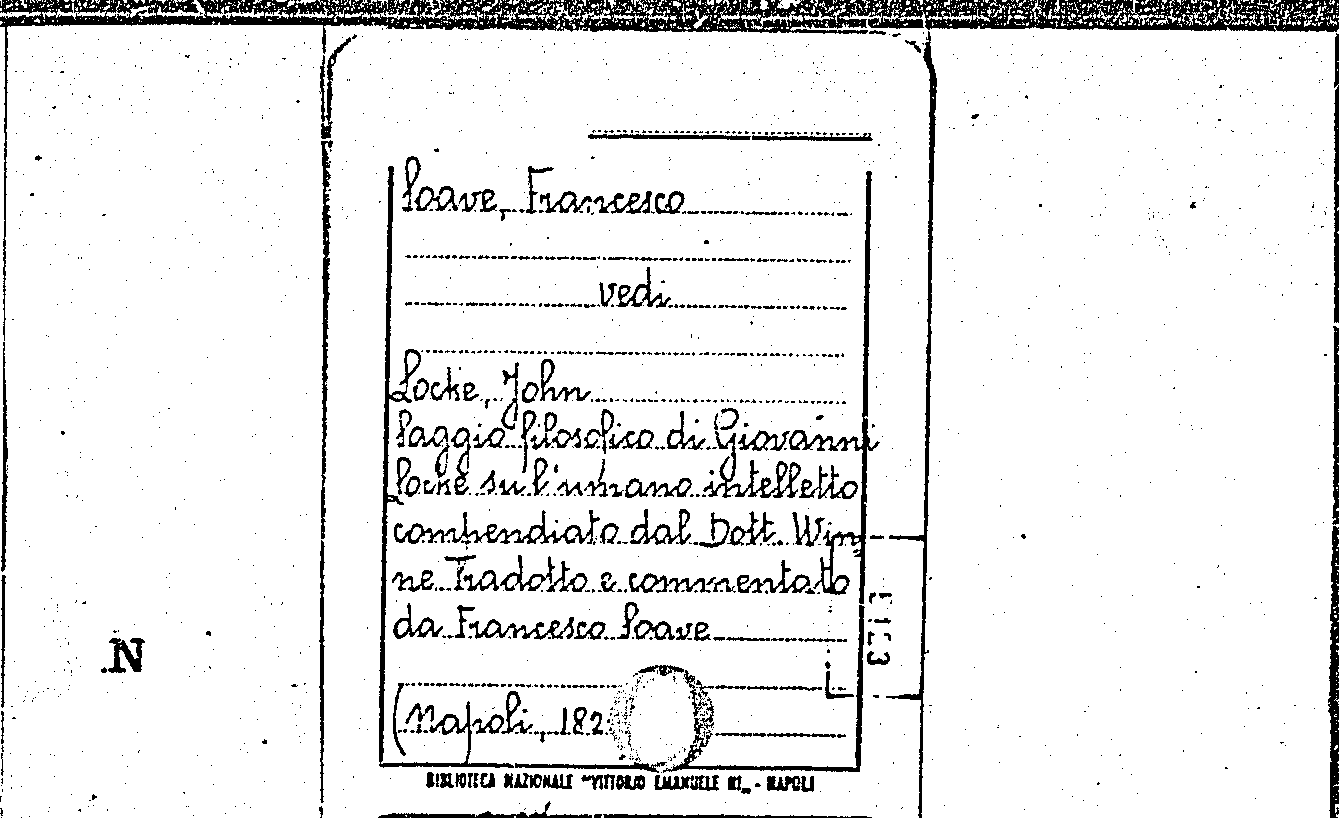 Soave, Francesco
vedi
Locke, John
Saggio filosofico di Giovanni
Locke sull'umano intelletto
compendiato dal Dott. Win=
ne Tradotto e commentato
da Francesco Soave
N
(Napoli, 182
BIBLIOTECA NAZIONALE "VITTORIO EMANUELE III„ - NAPOLI